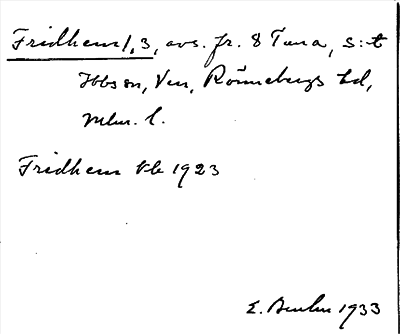 Fridhem 1,3, avs. fr. 8 Tuna, S:t
Ibbs sn, Ven, Rönnebergs hd,
Mlm. l.
Fridhem kb 1923
E. 1933